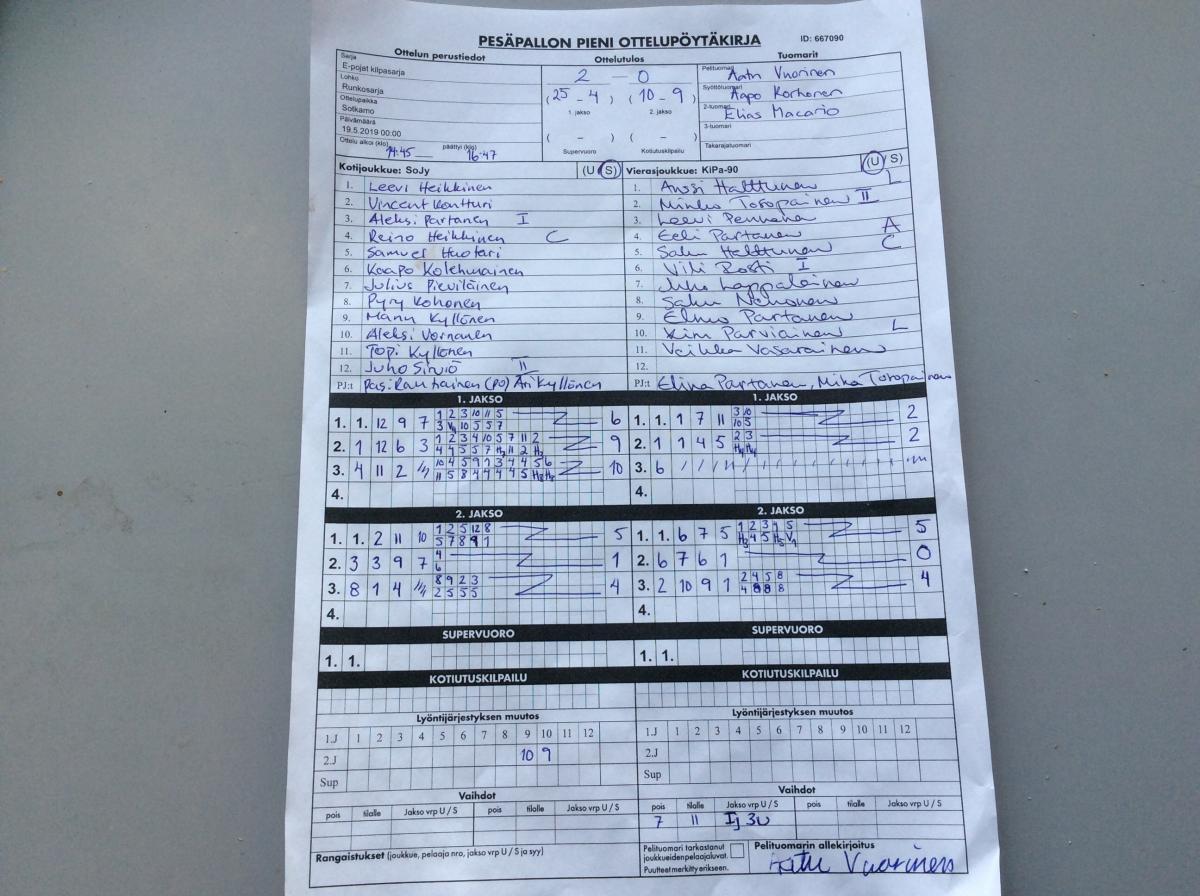 PESÄPALLON PIENI OTTELUPÖYTÄKIRJA ID: 667090
Ottelun perustiedot Ottelutulos Tuomarit
Sarja
E-pojat kilpasarja
Lohko
Runkosarja
Ottelupaikka
Sotkamo
Päivämäärä
19.5.2019 00:00
Ottelu alkoi (klo) 14:45 päättyi (klo) 16:47
2 – 0
(25 – 4) (10 – 9)
1. jakso 2. jakso
( – ) ( – )
Supervuoro Kotiutuskilpailu
Pelituomari Vuorinen
Syöttötuomari Aapo Korhonen
2-tuomari Elias Macario
3-tuomari
Takarajatuomari
Kotijoukkue: SoJy (U / S)
1. Leevi Heikkinen
2. Vincent Kontturi
3. Aleksi Partanen I
4. Reino Heikkinen C
5. Samuel Huotari
6. Kaapo Kolehmainen
7. Julius Pieviläinen
8. Pyry Kohonen
9. Manu Kyllönen
10. Aleksi Vornanen
11. Topi Kyllönen
12. Juho Sirviö II
PJ:t Pasi Rautiainen (PO) Ari Kyllönen
Vierasjoukkue: KiPa-90 (U / S)
1. Anssi Halttunen L
2. Minko Toropainen II
3. Leevi
4. Eeli Partanen A
5. Halttunen C
6. Vili I
7. Lappalainen
8. Nehonen
9. Elmo Partanen
10. Kim Parviainen L
11. Veikka Vasarainen
12.
PJ:t Elina Partanen, Mika Toropainen
1. JAKSO
1. 1. 12 9 7 1 2 3 10 11 5 6
2. 1 12 6 3 1 2 3 4 10 5 7 11 2 9
3. 4 11 2 10 4 5 9 1 3 4 4 5 6 10
4.
1. JAKSO
1. 1. 1 7 11 3 10 2
10 5
2. 1 1 4 5 2 3 2
3. 6
4.
2. JAKSO
1. 1. 2 11 10 1 2 5 12 8 5
5 7 8 9 1
2. 3 3 9 7 4 1
6
3. 8 1 4 8 9 2 3 4
2 5 5 5
4.
2. JAKSO
1. 1. 6 7 5 1 2 3 4 5 5
2. 6 7 6 1 0
3. 2 10 9 1 2 4 5 8 4
4 8 8 8
4.
SUPERVUORO
1. 1.
SUPERVUORO
1. 1.
KOTIUTUSKILPAILU
KOTIUTUSKILPAILU
Lyöntijärjestyksen muutos
1.J 1 2 3 4 5 6 7 8 9 10 11 12
2.J 10 9
Sup
Lyöntijärjestyksen muutos
1.J 1 2 3 4 5 6 7 8 9 10 11 12
2.J
Sup
Vaihdot
pois tilalle Jakso vrp U / S pois tilalle Jakso vrp U / S
Vaihdot
pois tilalle Jakso vrp U / S pois tilalle Jakso vrp U / S
7 11 Ij 3U
Rangaistukset (joukkue, pelaaja nro, jakso vrp U / S ja syy)
Pelituomari tarkastanut
joukkueiden pelaajaluvat.
Puutteet merkitty erikseen.
Pelituomarin allekirjoitus
Vuorinen